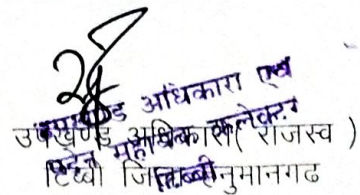 उपखण्ड अधिकारी एवं
उपखण्ड अधिकारी ( राजस्व )
पदेन सहायक कलेक्टर
टिब्बी जिला हनुमानगढ
टिब्बी